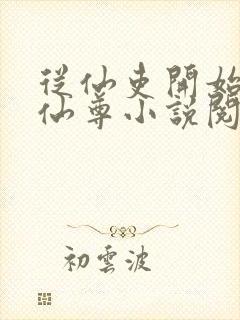 從仙吏開始
仙尊小說閱
初雲波